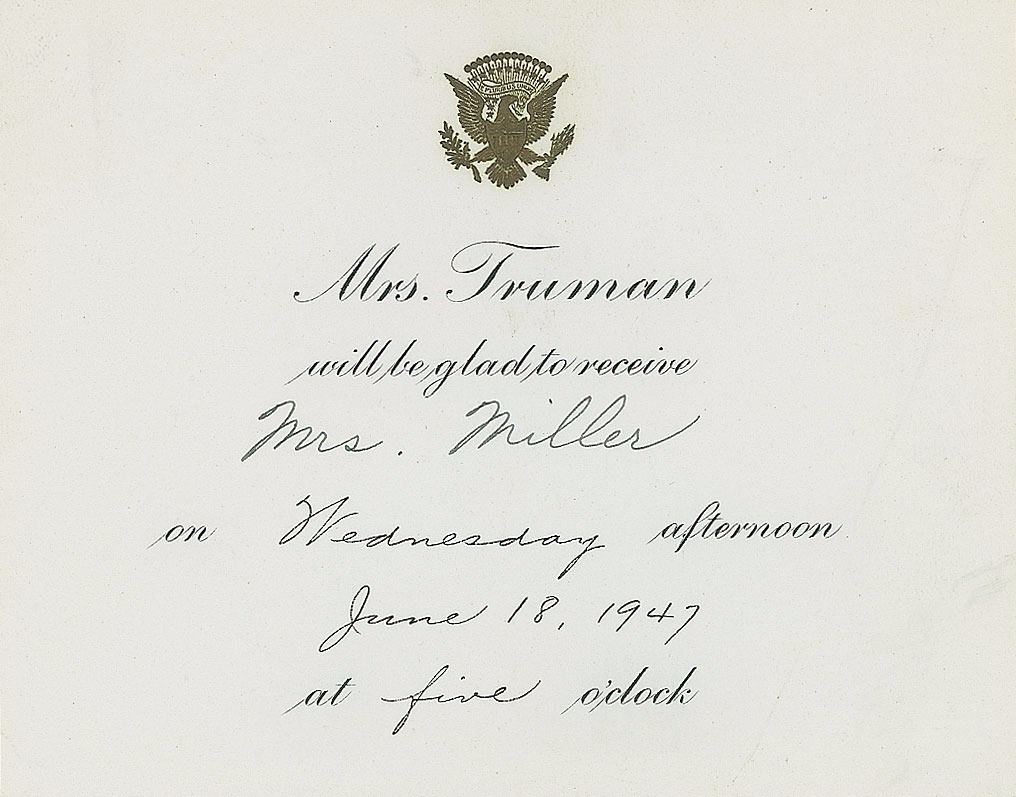 E PLURIBUS UNUM
Mrs. Truman
will be glad to receive
Mrs. Miller
on Wednesday afternoon
June 18, 1947
at five o'clock